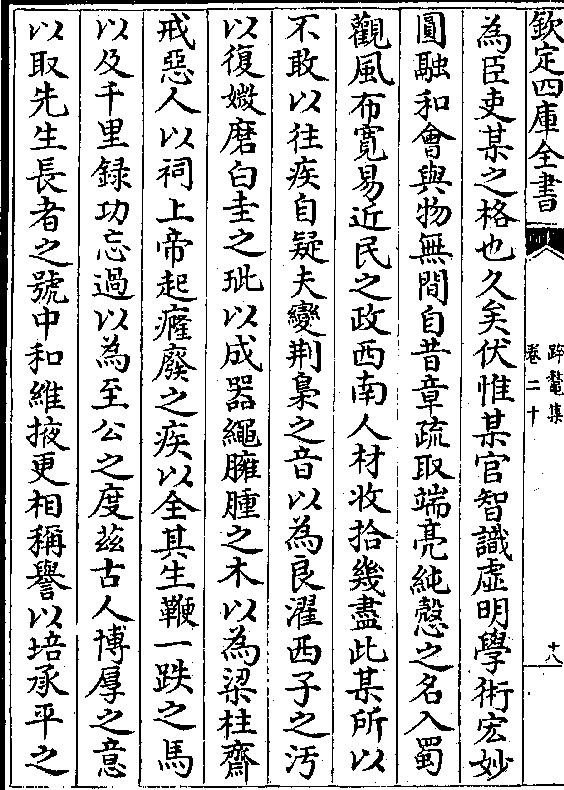 欽定四庫全書
跨鼇集
卷二十
十八
為臣吏某之格也久矣伏惟某官智識虛明學術宏妙
圓融和會與物無間自昔章疏取端亮純慤之名入蜀
觀風布寛易近民之政西南人材收拾幾盡此某所以
不敢以往疾自疑夫變荆梟之音以為良濯西子之汚
以復媺磨白圭之玼以成器繩臃腫之木以為梁柱齋
戒惡人以祠上帝起癃廢之疾以全其生鞭一跌之馬
以及千里録功忘過以為至公之度兹古人博厚之意
以取先生長者之號中和維掖更相稱譽以培承平之